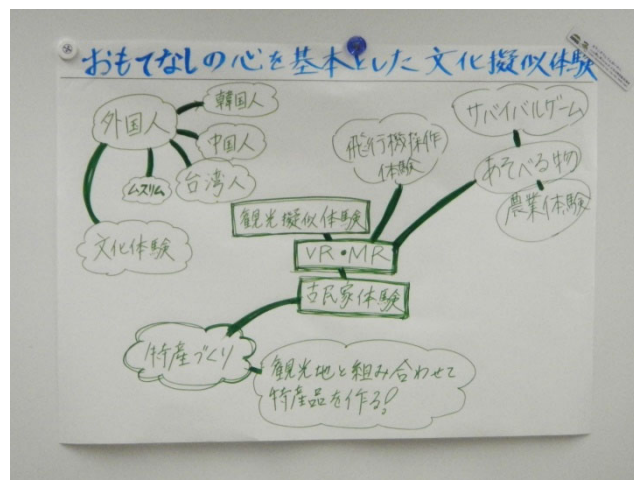 おもてなしの心を基本とした文化擬似体験
外国人
韓国人
中国人
台湾人
ムスリム
文化体験
飛行機操作
体験
サバイバルゲーム
あそべる物
農業体験
観光擬似体験
VR・MR
古民家体験
特産づくり
観光地と組み合わせて
特産品を作る!